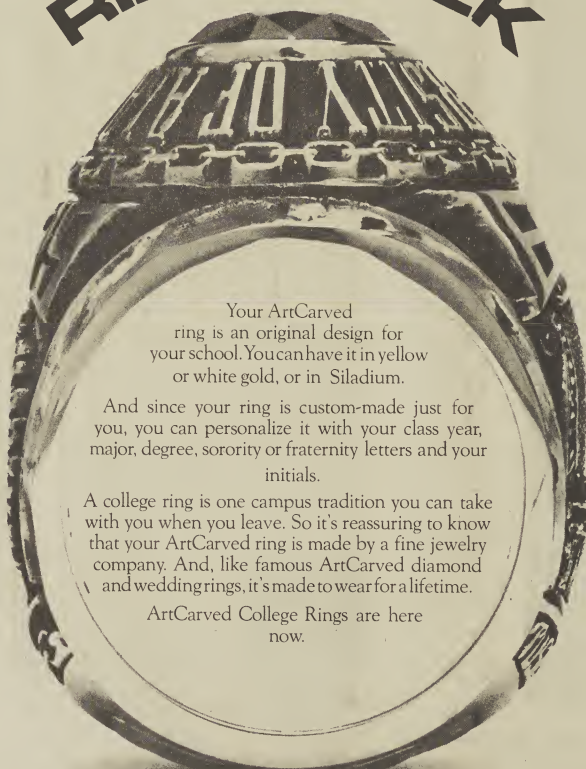 Your ArtCarved
ring is an original design for
your school. You can have it in yellow
or white gold, or in Siladium.
And since your ring is custom-made just for
you, you can personalize it with your class year,
major, degree, sorority or fraternity letters and your
initials.
A college ring is one campus tradition you can take
with you when you leave. So it's reassuring to know
that your ArtCarved ring is made by a fine jewelry
company. And, like famous ArtCarved diamond
and wedding rings, it's made to wear for a lifetime.
ArtCarved College Rings are here
now.